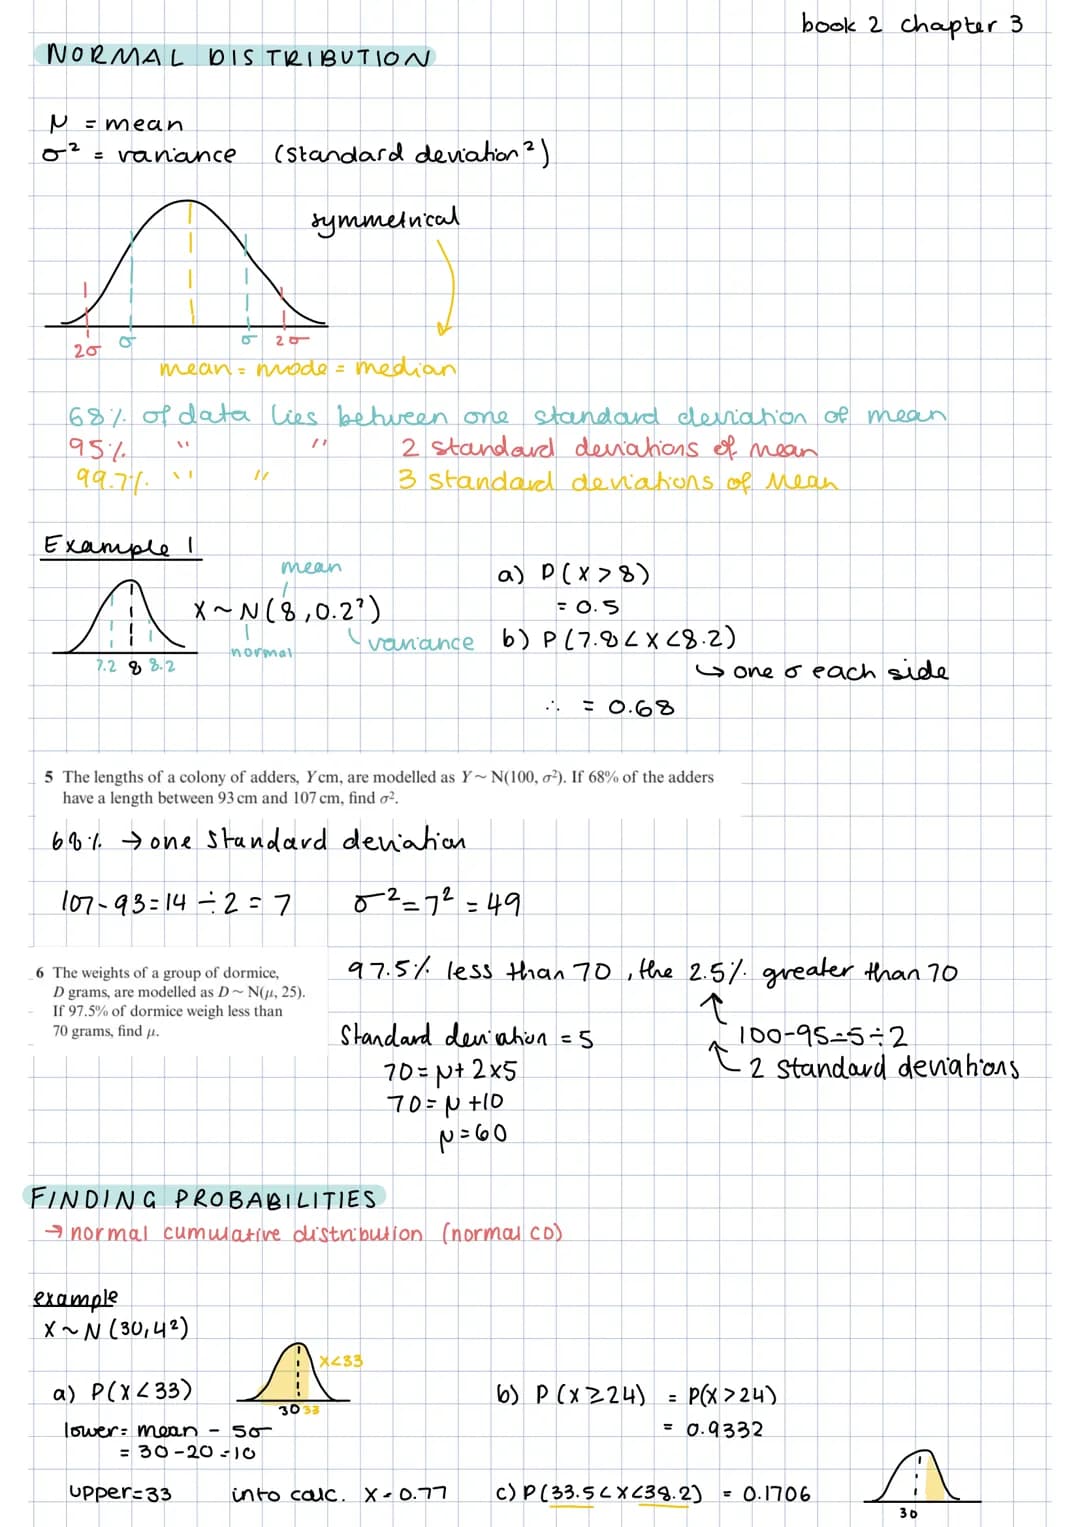 book 2 chapter 3
NORMAL DISTRIBUTION
μ = mean
σ² = variance (standard deviation²)
symmetrical
2σ σ σ 2σ
mean = mode = median
68% of data lies between one standard deviation of mean
95% " " 2 standard deviations of mean
99.7% " " 3 standard deviations of mean
Example 1
mean
X ~ N(8, 0.2²)
normal
variance
7.2 8 8.2
a) P(X > 8)
= 0.5
b) P(7.8 < X < 8.2)
↳ one σ each side
∴ = 0.68
5 The lengths of a colony of adders, Y cm, are modelled as Y ~ N(100, σ²). If 68% of the adders
have a length between 93 cm and 107 cm, find σ².
68% → one standard deviation
107-93=14 ÷ 2 = 7 σ²=7² = 49
6 The weights of a group of dormice,
D grams, are modelled as D ~ N(μ, 25).
If 97.5% of dormice weigh less than
70 grams, find μ.
97.5% less than 70, the 2.5% greater than 70
100-95=5÷2
2 standard deviations
Standard deviation = 5
70 = μ + 2×5
70 = μ + 10
μ = 60
FINDING PROBABILITIES
→ normal cumulative distribution (normal CD)
example
X ~ N (30, 4²)
a) P(X < 33)
X<33
30 33
lower = mean - 5σ
= 30 - 20 = 10
upper=33 into calc. X = 0.77
b) P (X ≥ 24) = P(X > 24)
= 0.9332
c) P(33.5 < X < 38.2) = 0.1706
30